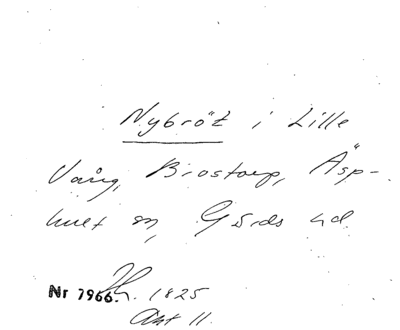 Nybröt i Lille
Vång, Brostorp, Äsp-
hult sn, Gärds hd
Nr 7966. 1825
Akt 11.